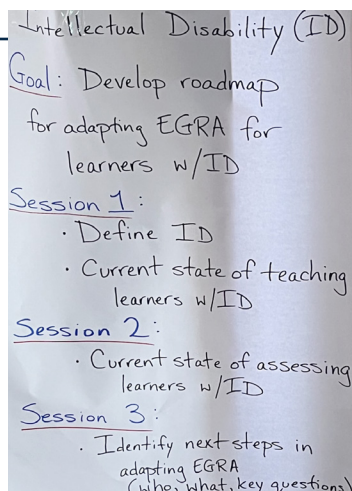 Intellectual Disability (ID)
Goal: Develop roadmap
for adapting EGRA for
learners w/ID
Session 1:
· Define ID
· Current state of teaching
learners w/ID
Session 2:
· Current state of assessing
learners w/ID
Session 3:
· Identify next steps in
adapting EGRA
(who, what, key questions)